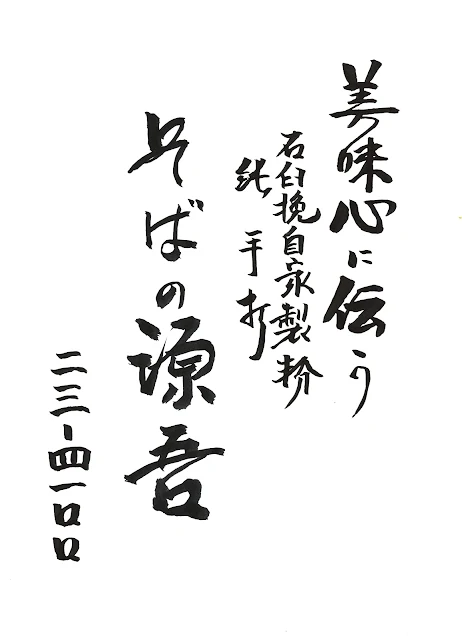 美味心に伝う
石臼挽自家製粉
純手打
そばの源吾
二三-四一〇〇